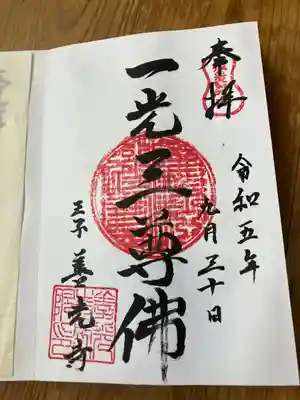 奉拝
令和五年
九月三十日
一光三尊佛
善光寺